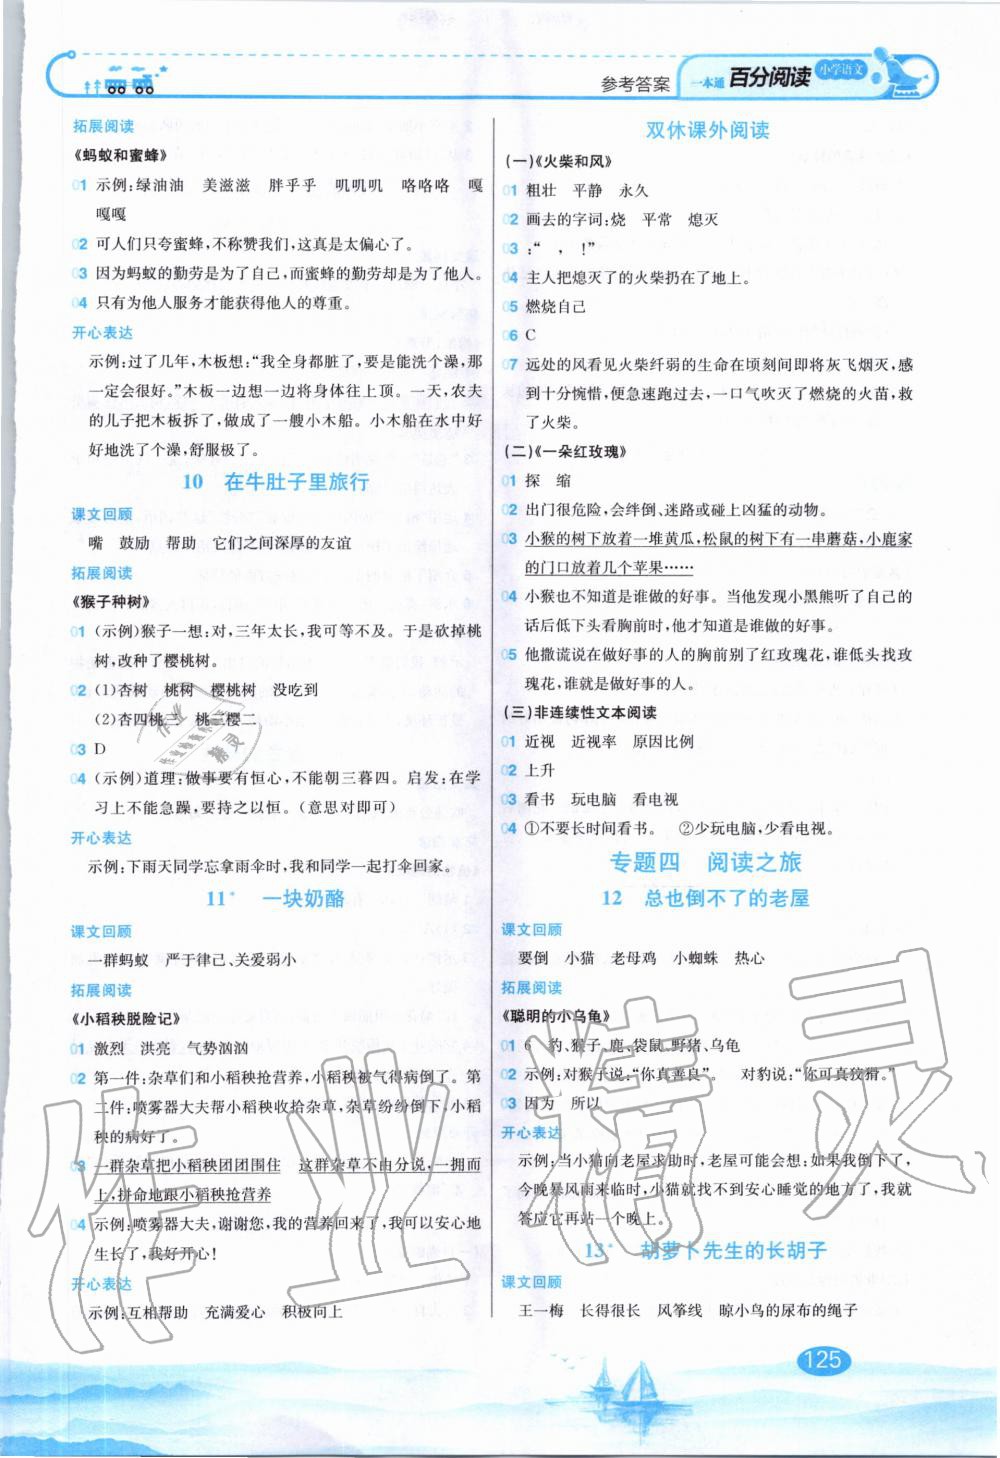 参考答案 一本通 百分阅读 小学语文
拓展阅读
《蚂蚁和蜜蜂》
01 示例:绿油油 美滋滋 胖乎乎 叽叽叽 咯咯咯 嘎
嘎嘎
02 可人们只夸蜜蜂,不称赞我们,这真是太偏心了。
03 因为蚂蚁的勤劳是为了自己,而蜜蜂的勤劳却是为了他人。
04 只有为他人服务才能获得他人的尊重。
开心表达
示例:过了几年,木板想:“我全身都脏了,要是能洗个澡,那
一定会很好。”木板一边想一边将身体往上顶。一天,农夫
的儿子把木板拆了,做成了一艘小木船。小木船在水中好
好地洗了个澡,舒服极了。
10 在牛肚子里旅行
课文回顾
嘴 鼓励 帮助 它们之间深厚的友谊
拓展阅读
《猴子种树》
01 (示例)猴子一想:对,三年太长,我可等不及。于是砍掉桃
树,改种了樱桃树。
02 (1)杏树 桃树 樱桃树 没吃到
(2)杏四桃三 桃三樱二
03 D
04 (示例)道理:做事要有恒心,不能朝三暮四。启发:在学
习上不能急躁,要持之以恒。(意思对即可)
开心表达
示例:下雨天同学忘拿雨伞时,我和同学一起打伞回家。
11* 一块奶酪
课文回顾
一群蚂蚁 严于律己、关爱弱小
拓展阅读
《小稻秧脱险记》
01 激烈 洪亮 气势汹汹
02 第一件:杂草们和小稻秧抢营养,小稻秧被气得病倒了。第
二件:喷雾器大夫帮小稻秧收拾杂草,杂草纷纷倒下,小稻
秧的病好了。
03 一群杂草把小稻秧团团围住 这群杂草不由分说,一拥而
上,拼命地跟小稻秧抢营养
04 示例:喷雾器大夫,谢谢您,我的营养回来了,我可以安心地
生长了,我好开心!
开心表达
示例:互相帮助 充满爱心 积极向上
双休课外阅读
(一)《火柴和风》
01 粗壮 平静 永久
02 画去的字词:烧 平常 熄灭
03 :“ , !”
04 主人把熄灭了的火柴扔在了地上。
05 燃烧自己
06 C
07 远处的风看见火柴纤弱的生命在顷刻间即将灰飞烟灭,感
到十分惋惜,便急速跑过去,一口气吹灭了燃烧的火苗,救
了火柴。
(二)《一朵红玫瑰》
01 探 缩
02 出门很危险,会绊倒、迷路或碰上凶猛的动物。
03 小猴的树下放着一堆黄瓜,松鼠的树下有一串蘑菇,小鹿家
的门口放着几个苹果……
04 小猴也不知道是谁做的好事。当他发现小黑熊听了自己的
话后低下头看胸前时,他才知道是谁做的好事。
05 他撒谎说在做好事的人的胸前别了红玫瑰花,谁低头找玫
瑰花,谁就是做好事的人。
(三)非连续性文本阅读
01 近视 近视率 原因比例
02 上升
03 看书 玩电脑 看电视
04 ①不要长时间看书。 ②少玩电脑,少看电视。
专题四 阅读之旅
12 总也倒不了的老屋
课文回顾
要倒 小猫 老母鸡 小蜘蛛 热心
拓展阅读
《聪明的小乌龟》
01 6 豹、猴子、鹿、袋鼠、野猪、乌龟
02 示例:对猴子说:“你真善良”。 对豹说:“你可真狡猾。”
03 因为 所以
开心表达
示例:当小猫向老屋求助时,老屋可能会想:如果我倒下了,
今晚暴风雨来临时,小猫就找不到安心睡觉的地方了,我就
答应它再站一个晚上。
13* 胡萝卜先生的长胡子
课文回顾
王一梅 长得很长 风筝线 晾小鸟的尿布的绳子
125
作业精灵